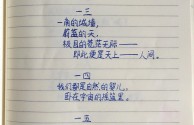 一三
一角的城墙，
蔚蓝的天，
极目的苍茫无际——
即此便是天上——人间。
一四
我们都是自然的婴儿，
卧在宇宙的摇篮里。
一五